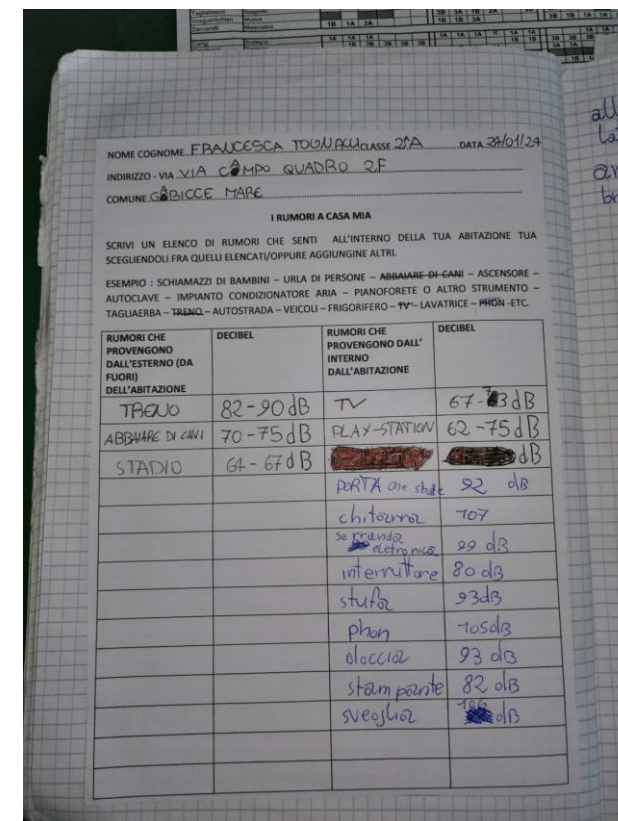 1B 1A 3A
NOME COGNOME FRANCESCA TOGNACCI CLASSE 2^A DATA 24/01/24
INDIRIZZO - VIA VIA CAMPO QUADRO 2F
COMUNE GABICCE MARE
I RUMORI A CASA MIA
SCRIVI UN ELENCO DI RUMORI CHE SENTI ALL'INTERNO DELLA TUA ABITAZIONE TUA
SCEGLIENDOLI FRA QUELLI ELENCATI/OPPURE AGGIUNGINE ALTRI.
ESEMPIO : SCHIAMAZZI DI BAMBINI – URLA DI PERSONE – ABBAIARE DI CANI – ASCENSORE –
AUTOCLAVE – IMPIANTO CONDIZIONATORE ARIA – PIANOFORETE O ALTRO STRUMENTO –
TAGLIAERBA – TRENO – AUTOSTRADA – VEICOLI – FRIGORIFERO – TV – LAVATRICE – PHON -ETC.
RUMORI CHE PROVENGONO DALL'ESTERNO (DA FUORI) DELL'ABITAZIONE DECIBEL RUMORI CHE PROVENGONO DALL' INTERNO DALL'ABITAZIONE DECIBEL
TRENO 82-90 dB TV 67-73 dB
ABBAIARE DI CANI 70-75 dB PLAY-STATION 62-75 dB
STADIO 61-67 dB dB
PORTA che 92 dB
chitarra 107
serranda eletronica 99 dB
interruttore 80 dB
stufa 93 dB
phon 105 dB
doccia 93 dB
stampante 82 dB
sveglia dB